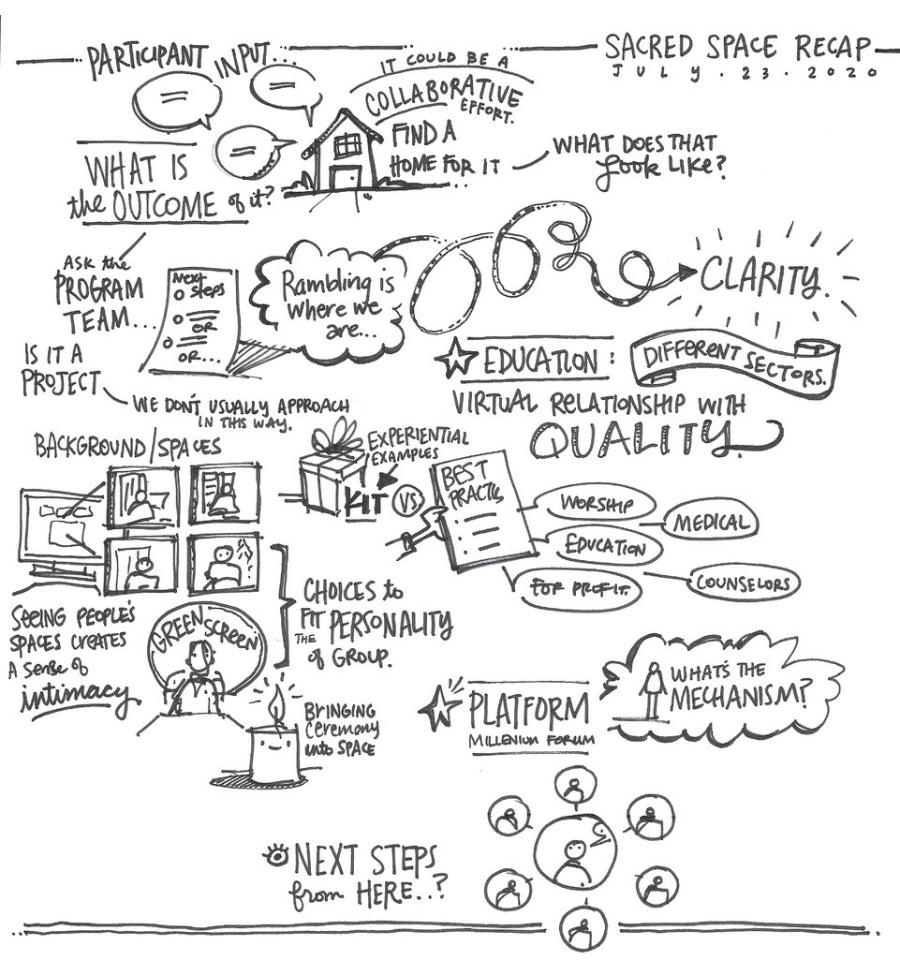 PARTICIPANT INPUT...
SACRED SPACE RECAP
JULY.23.2020
IT COULD BE A
COLLABORATIVE
EFFORT.
FIND A
HOME FOR IT
WHAT DOES THAT
Look Like?
WHAT IS
the OUTCOME of it?
ASK the
PROGRAM
TEAM...
Next
Steps
OR
OR...
Rambling is
where we
are...
CLARITY.
IS IT A
PROJECT
WE DON'T USUALLY APPROACH
IN THIS WAY.
EDUCATION:
DIFFERENT SECTORS.
VIRTUAL RELATIONSHIP WITH
QUALITY.
BACKGROUND/SPACES
EXPERIENTIAL
EXAMPLES
KIT
VS
BEST
PRACTIC
WORSHIP
MEDICAL
EDUCATION
FOR PROFIT.
COUNSELORS
SEEING PEOPLE'S
SPACES CREATES
A SENSE of
intimacy
GREEN SCREEN
CHOICES to
FIT
THE PERSONALITY
of GROUP.
BRINGING
Ceremony
into SPACE
PLATFORM
MILLENIUM FORUM
WHAT'S THE
MECHANISM?
NEXT STEPS
from HERE..?